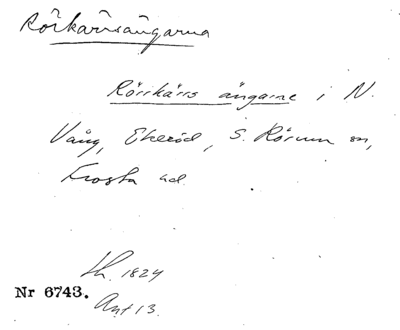 Rörkärrsängarna
Rörrkärrs ängarne i N.
Vång, Ekeröd, S. Rörum sn,
Frosta hd.
Lh. 1824
Nr 6743.
Ant 13.